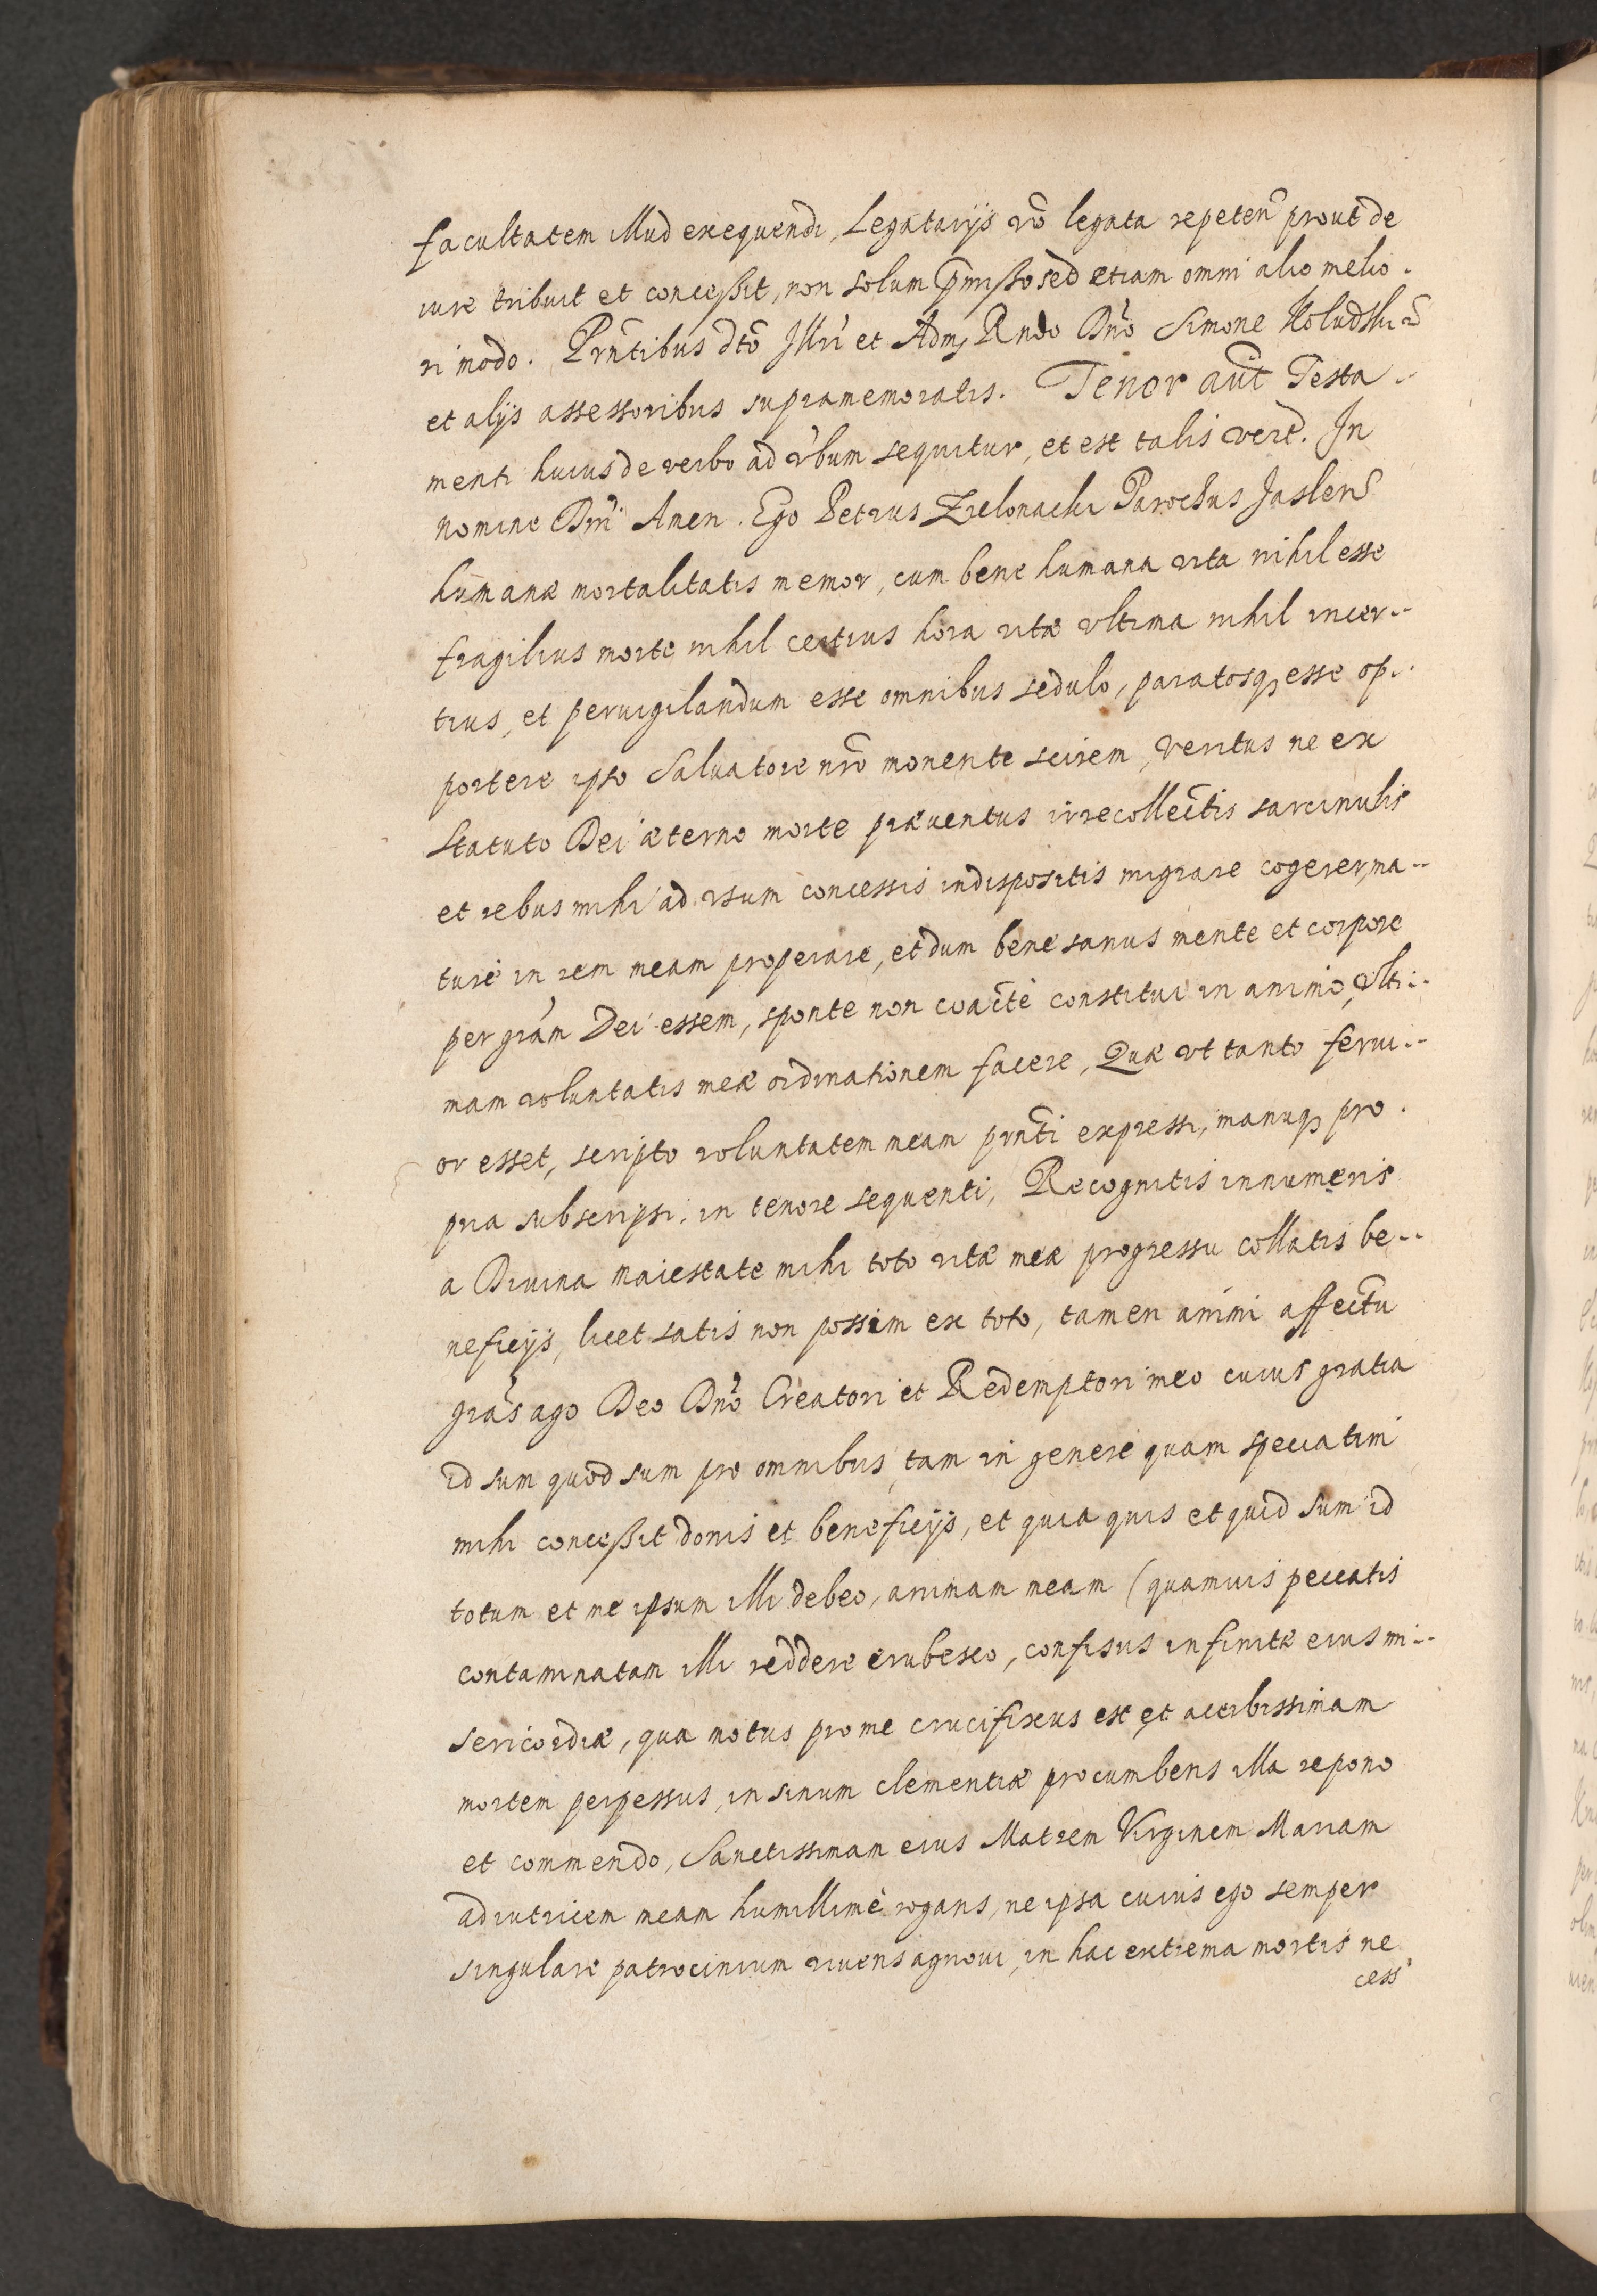 facultatem illud exequendi, Legatarijs vō legata repeten̄ prout de
iure tribuit et conceßit, non solum p̄mißo sed etiam omni alio melio.
ri modo. Prn̄tibus dc̄to Illr̄i et Adm̄ Rn̄do Dn̄o Simone Koludzki
et alijs assessoribus supramemoratis. Tenor aūt Testa..
menti huius de verbo ad v̄bum sequitur, et est talis vert. In
nomine Dn̄i Amen. Ego Petrus Zielonacki Parochus Jaslen̄
humanæ mortalitatis memor, cum bene humana vita nihil esse
fragilius morte nihil certius hora vitæ vltima nihil incer..
tius, et peruigilandum esse omnibus sedulo, paratosq₃ esse op..
portere ipso Saluatore nr̄o monente scirem, veritus ne ex
statuto Dei æterno morte præuentus irrecollectis sarcinulis
et rebus mihi ad vsum concessis indispositis migrare cogerer, ma..
turè in rem meam properare, et dum bene sanus mente et corpore
per grām Dei essem, sponte non coactè constitui in animo, vlti..
mam voluntatis meæ ordinationem facere, Quæ vt tanto firmi..
or esset, scripto voluntatem meam prn̄ti expressi, manuq₃ pro.
pria subscripsi, in tenore sequenti, Recognitis innumeris
a Diuina maiestate mihi toto vitæ meæ progressu collatis be..
neficijs, licet satis non possim ex toto, tamen animi affectu
grās ago Deo Dn̄o Creatori et Redemptori meo cuius gratia
id sum quod sum pro omnibus tam in genere quam speciatim
mihi conceßit donis et beneficijs, et quia quis et quid sum id
totum et me ipsum illi debeo, animam meam (quamuis peccatis
contaminatam illi reddere erubesco, confisus infinitæ eius mi..
sericordiæ, qua motus pro me crucifixus est et acerbissimam
mortem perpessus, in sinum clementiæ procumbens illa repono
et commendo, Sanctissimam eius Matrem Virginem Mariam
adiutricem meam humillimè rogans, ne ipsa cuius ego semper
singulare patrocinium viuens agnoui, in hac extrema mortis ne
cess